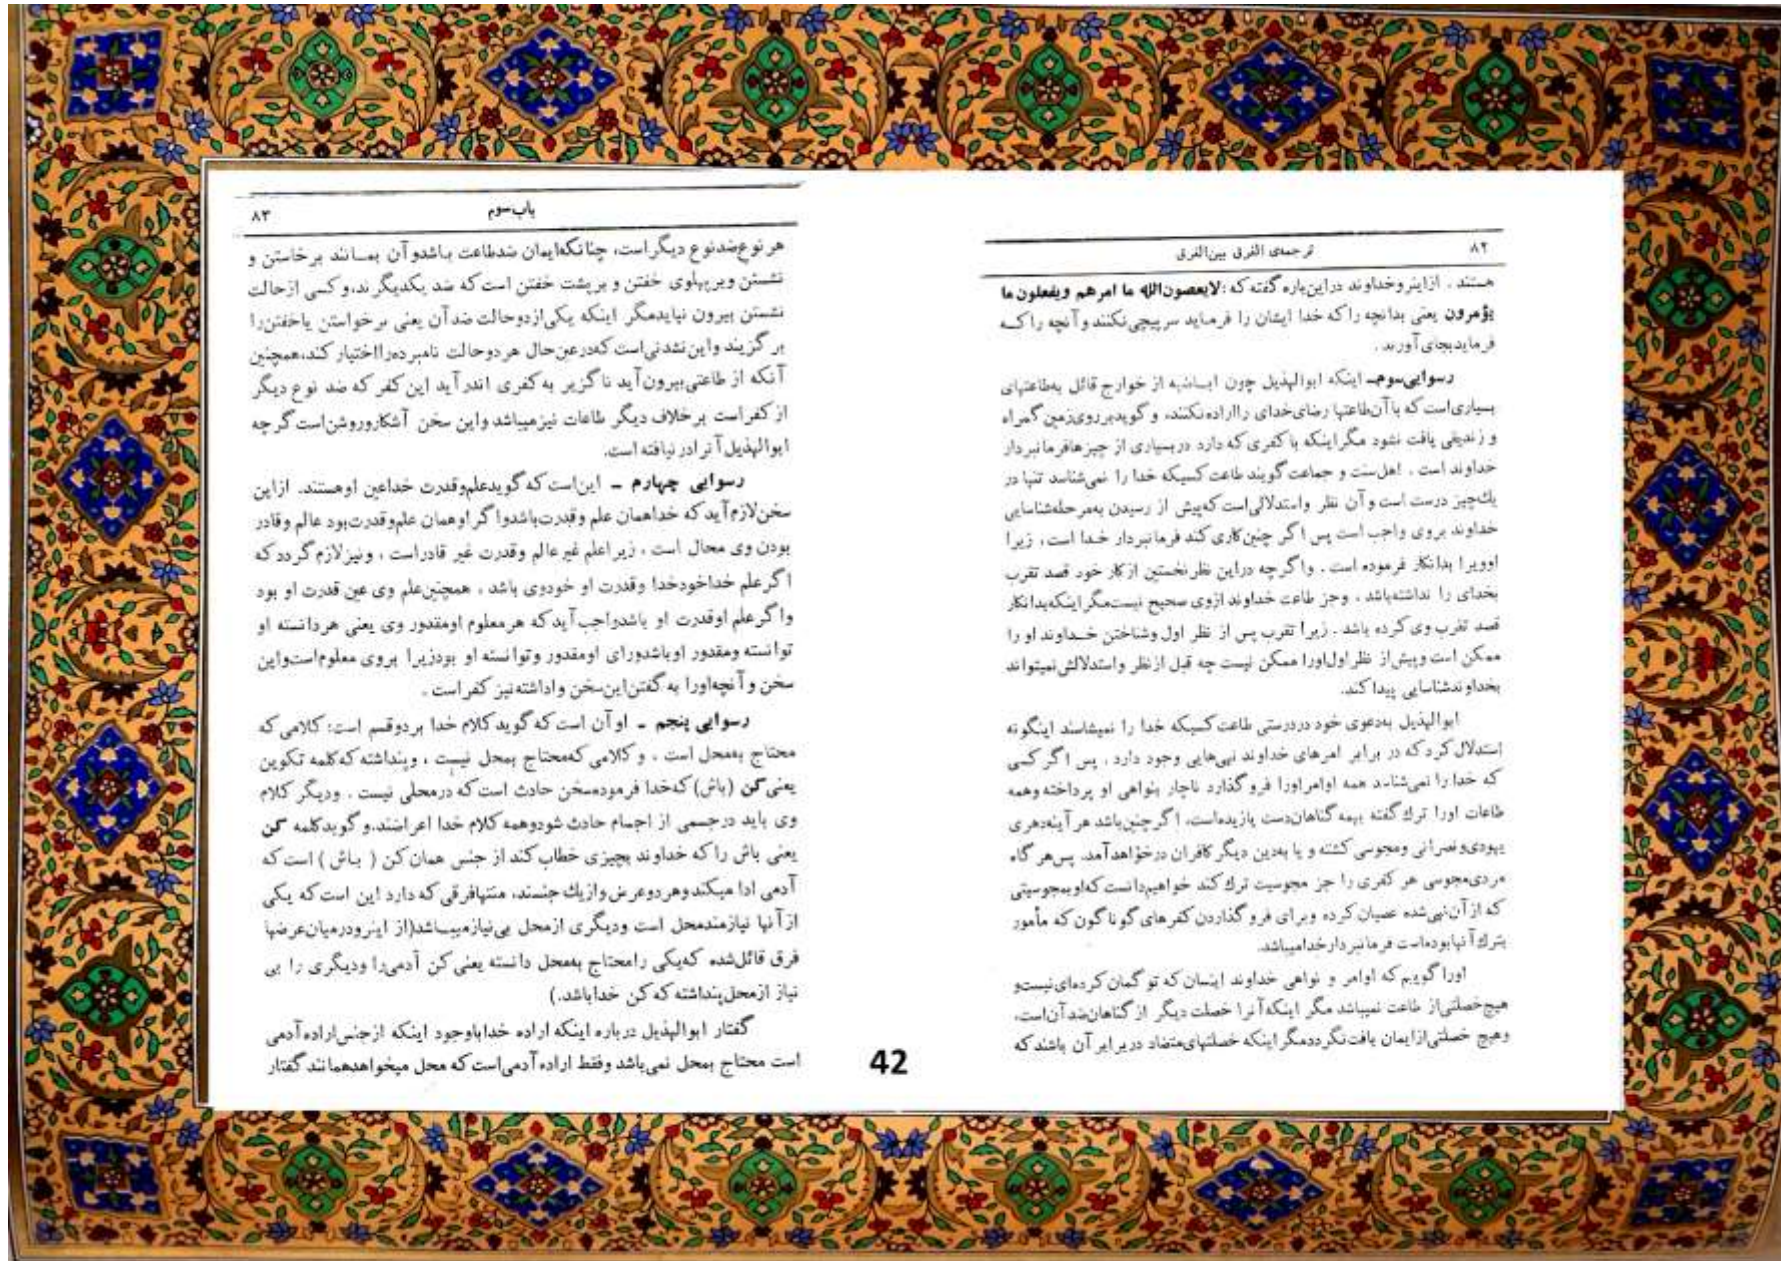 ۸۲
ترجمه‌ی الفرق بین‌الفرق
هستند . ازاینروخداوند دراین‌باره گفته که : لایعصون‌الله ما امرهم ویفعلون ما
یؤمرون یعنی بدانچه راکه خدا ایشان را فرماید سرپیچی نکنند وآنچه راکه
فرمایدبجای آورند .
رسوایی سوم- اینکه ابوالهذیل چون اباضیه از خوارج قائل به‌طاعتهای
بسیاری‌است که باآن‌طاعتها رضای‌خدای رااراده‌نکنند، و گویدبرروی‌زمین گمراه
و زندیقی یافت نشود مگراینکه باکفری که دارد دربسیاری از چیزهافرمانبردار
خداوند است . اهل‌سنت و جماعت گویند طاعت کسیکه خدا را نمی‌شناسد تنها در
یك‌چیز درست است وآن نظر واستدلالی‌است که‌پیش از رسیدن به‌مرحله‌شناسایی
خداوند بروی واجب است پس اگر چنین‌کاری کند فرمانبردار خدا است ، زیرا
اوویرا بدانکار فرموده است . واگرچه دراین نظرنخستین ازکار خود قصد تقرب
بخدای را نداشته‌باشد . وجز طاعت خداوند ازوی صحیح نیست‌مگراینکه‌بدانکار
قصد تقرب وی کرده باشد . زیرا تقرب پس از نظر اول وشناختن خداوند او را
ممکن است وپیش‌از نظراول‌اورا ممکن نیست چه قبل ازنظر واستدلالش‌نمیتواند
بخداوندشناسایی پیداکند.
ابوالهذیل به‌دعوی خود دردرستی طاعت کسیکه خدا را نمیشناسد اینگونه
استدلال کرد که در برابر امرهای خداوند نهی‌هایی وجود دارد . پس اگر کسی
که خدا را نمی‌شناسد همه اوامراورا فروگذارد ناچار بنواهی او پرداخته وهمه
طاعات اورا ترك گفته بهمه گناهان‌دست یازیده‌است، اگرچنین‌باشد هرآینه‌دهری
یهودی‌ونصرانی ومجوسی گشته و یا به‌دین دیگر کافران درخواهدآمد. پس‌هر گاه
مردی‌مجوسی هر کفری را جز مجوسیت ترك کند خواهیم‌دانست که‌اوبمجوسیتی
که ازآن‌نهی‌شده عصیان کرده وبرای فروگذاردن کفرهای گوناگون که مأمور
بترك آنهابوده‌است فرمانبردارخدامیباشد.
اورا گوییم که اوامر و نواهی خداوند اینسان که تو گمان کرده‌ای‌نیست‌و
هیچ‌خصلتی‌از طاعت نمیباشد مگر اینکه‌آنرا خصلت دیگر از گناهان‌ضدآن‌است،
وهیچ خصلتی‌ازایمان یافت‌نگرددمگراینکه خصلتهای‌متضاد دربرابرآن باشندکه
باب‌سوم
۸۳
هرنوع‌ضدنوع دیگراست، چنانکه‌ایمان ضدطاعت باشدوآن بمانند برخاستن و
نشستن وبرپهلوی خفتن و برپشت خفتن است که ضد یکدیگرند،وکسی ازحالت
نشستن بیرون نیایدمگر اینکه یکی‌ازدوحالت ضدآن یعنی برخواستن یاخفتن‌را
برگزیند واین‌نشدنی‌است که‌درعین‌حال هردوحالت نامبرده‌رااختیارکند،همچنین
آنکه از طاعتی‌بیرون‌آید ناگزیر به‌کفری اندرآید این‌کفر که ضد نوع دیگر
ازکفراست برخلاف دیگر طاعات نیزمیباشد واین سخن آشکاروروشن‌است گرچه
ابوالهذیل‌آنرادرنیافته‌است.
رسوایی چهارم - این‌است که گویدعلم‌وقدرت خداعین اوهستند. ازاین
سخن‌لازم‌آیدکه خداهمان علم وقدرت‌باشدواگراوهمان علم‌وقدرت‌بود عالم وقادر
بودن وی محال است ، زیراعلم غیرعالم وقدرت غیر قادراست ، ونیزلازم گرددکه
اگرعلم خداخودخدا وقدرت او خودوی باشد ، همچنین‌علم وی عین قدرت او بود
واگرعلم اوقدرت او باشدواجب‌آیدکه هرمعلوم اومقدور وی یعنی هردانسته او
توانسته ومقدور اوباشدورای اومقدور وتوانسته او بودزیرا بروی معلوم‌است‌واین
سخن وآنچه‌اورا به گفتن‌این‌سخن واداشته‌نیز کفراست .
رسوایی پنجم - اوآن است‌که گویدکلام خدا بردوقسم است؛ کلامی که
محتاج به‌محل است ، وکلامی که‌محتاج بمحل نیست ، وپنداشته که‌کلمه تکوین
یعنی کن (باش) که‌خدا فرموده‌سخن حادث است‌که درمحلی نیست . ودیگر کلام
وی باید درجسمی از اجسام حادث شودوهمه‌کلام خدا اعراضند.و گویدکلمه کن
یعنی باش راکه خداوند بچیزی خطاب‌کند از جنس همان کن ( باش ) است که
آدمی ادا میکندوهردوعرض‌وازیك جنسند، منتهافرقی که دارد این است که یکی
ازآنها نیازمندمحل است ودیگری ازمحل بی‌نیازمیباشد(از اینرودرمیان‌عرضها
فرق قائل‌شده که‌یکی رامحتاج به‌محل دانسته یعنی کن آدمی‌را ودیگری را بی
نیاز ازمحل‌پنداشته که کن خداباشد.)
گفتار ابوالهذیل درباره اینکه اراده خداباوجود اینکه ازجنس‌اراده‌آدمی
است محتاج بمحل نمی‌باشد وفقط اراده‌آدمی‌است که محل میخواهدهمانند گفتار
42